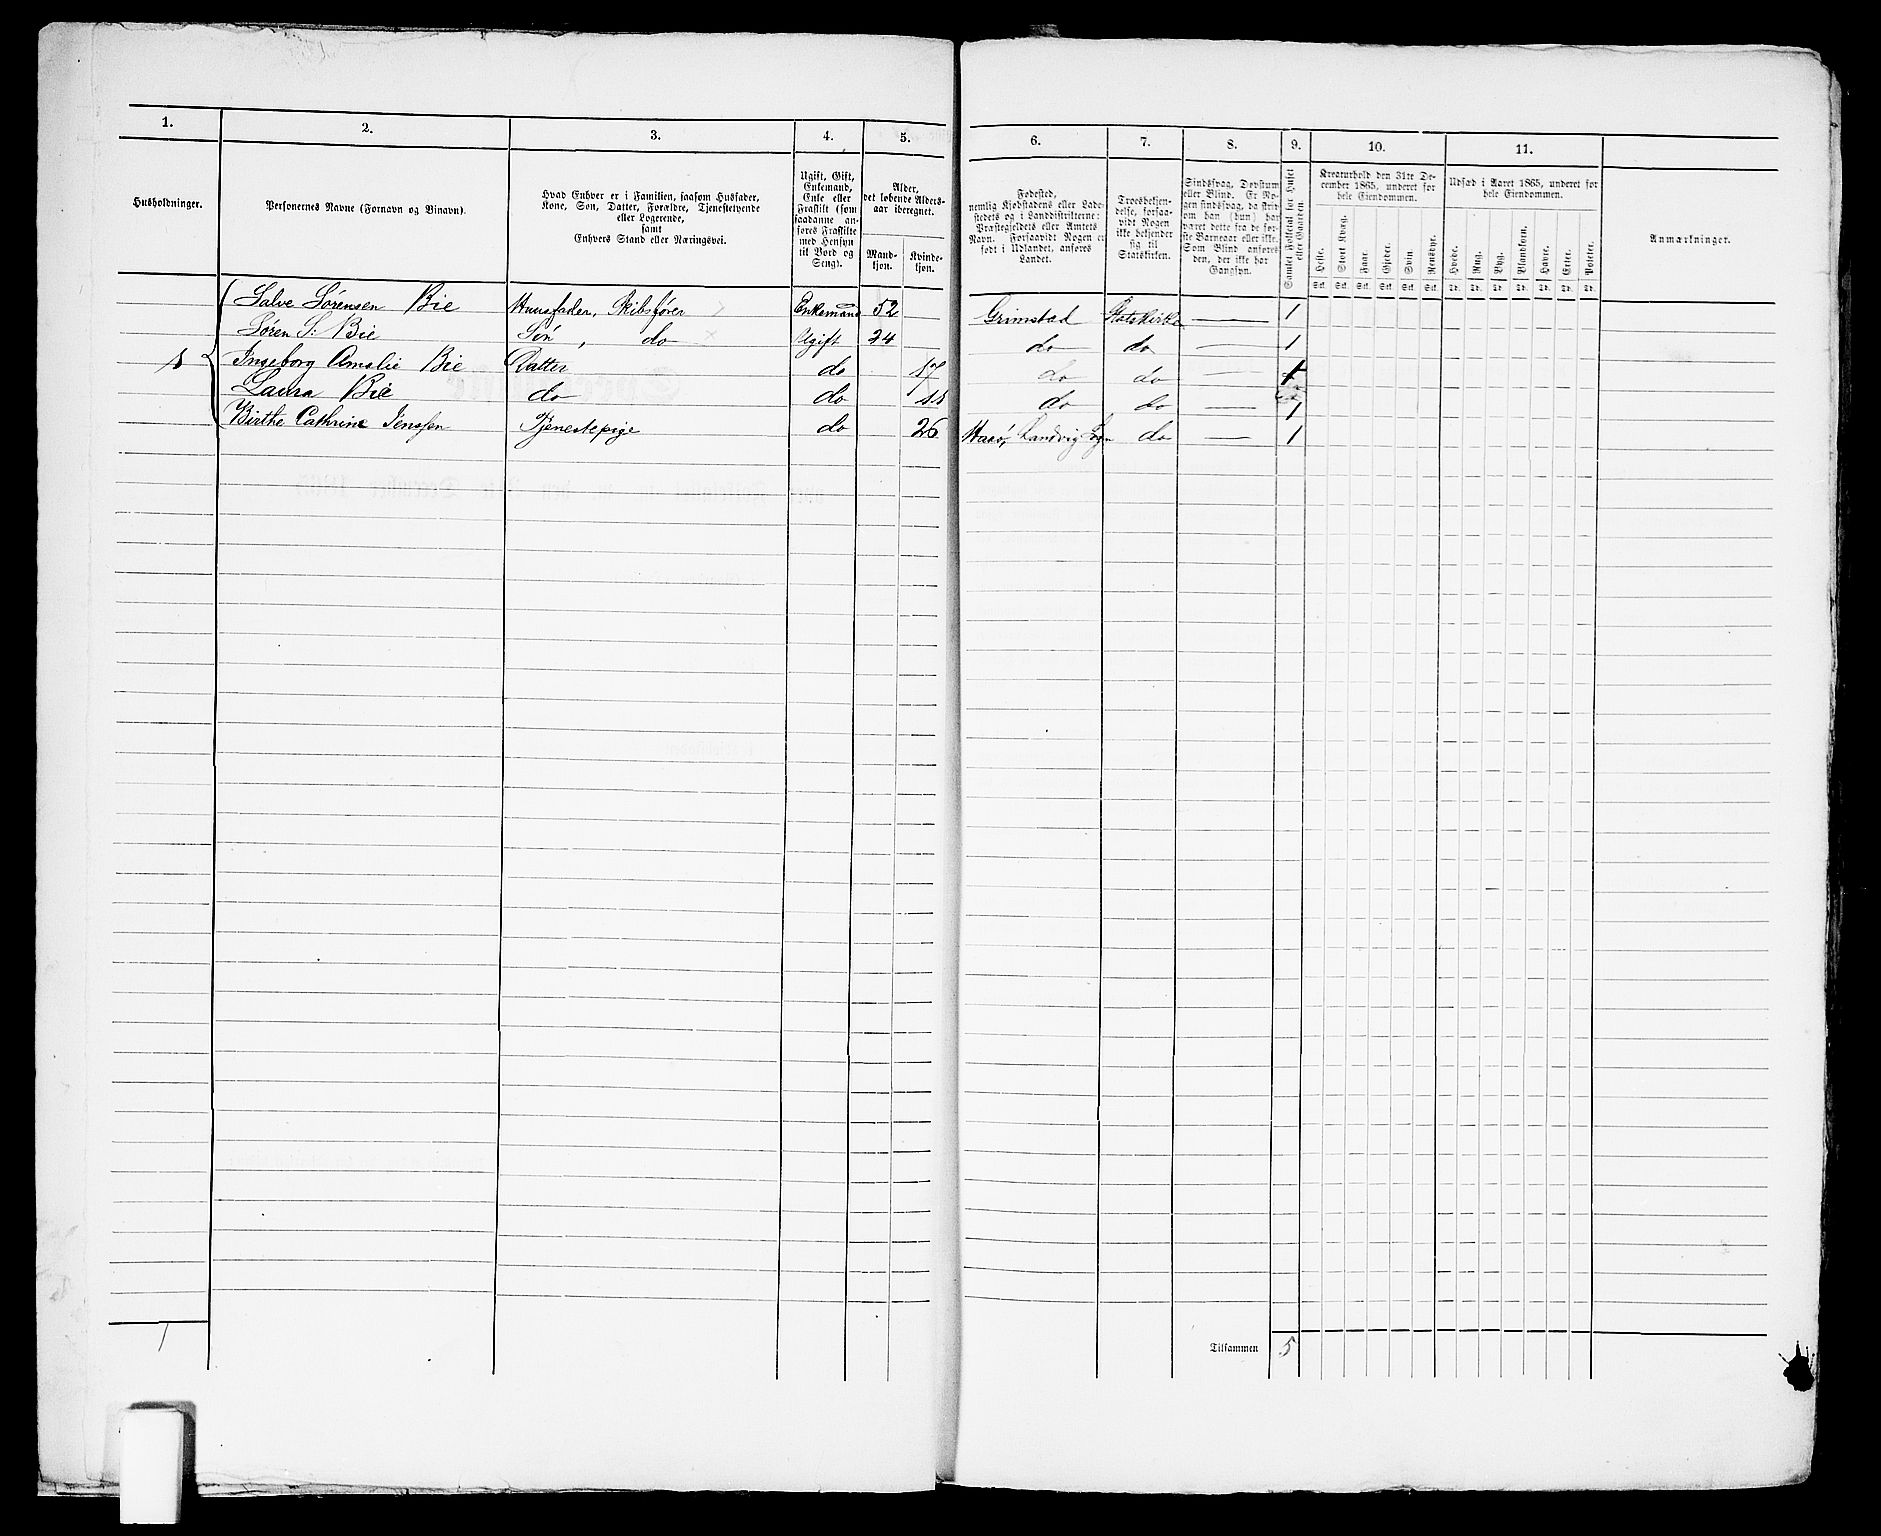 1. 2. 3. 4. 5. 6. 7. 8. 9. 10. 11.
Husholdninger.
Personernes Navne (Fornavn og Binavn).
Hvad Enhver er i Familien, saasom Husfader,
Kone, Søn, Datter, Forældre, Tjenestetyende
eller Logerende,
samt
Enhvers Stand eller Næringsvei.
Ugift, Gift,
Enkemand,
Enke eller
Fraskilt (som
saadanne an-
føres Fraskilte
med Hensyn
til Bord og
Seng).
Alder,
det løbende Alders-
aar iberegnet.
Mand-
kjøn.
Kvinde-
kjøn.
Fødested,
nemlig Kjøbstadens eller Lade-
stedets og i Landdistrikterne:
Præstegjeldets eller Amtets
Navn. Forsaavidt Nogen er
født i Udlandet, anføres
Landet.
Troesbekjen-
delse, forsaa-
vidt Nogen
ikke bekjender
sig til
Statskirken.
Sindssvag, Døvstum
eller Blind. Er No-
gen sindssvag, da skriv
om han (hun) har
været dette fra de før-
ste Barneaar eller ikke.
Som Blind anføres
den, der ikke har
Gangsyn.
Samlet Folketal for Huset
eller Gaarden.
Kreaturhold den 31te De-
cember 1865, underet for
hele Eiendommen.
Heste. Stort Kvæg. Faar. Gjeder. Svin. Rensdyr.
Stk. Stk. Stk. Stk. Stk. Stk.
Udsæd i Aaret 1865, underet for
hele Eiendommen.
Hvede. Rug. Byg. Blandkorn. Havre. Erter. Poteter.
Td. Td. Td. Td. Td. Td. Td.
Anmærkninger.
Salve Sørensen Bie Huusfader, Skibsfører Enkemand 52 Grimstad Statskirke — 1
Søren S: Bie Søn, do Ugift 24 do do — 1
1 Ingeborg Amalie Bie Datter do 17 do do — 1
Laura Bie do do do do — 1
Birthe Cathrine Jenssen Tjenestepige do 26 Landvig Sogn do — 1
1
Tilsammen 5